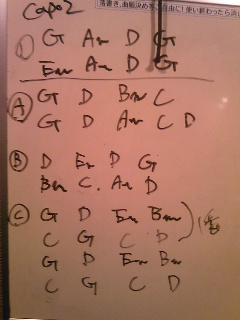 capo2
落書き、曲順決め等ご自由に！使い終わったら消し
① G Am D G
Em Am D G
Ⓐ G D Bm C
G D Am C D
Ⓑ D Em D G
Bm C. Am D
Ⓒ G D Em Bm
C G C D
G D Em Bm
C G C D